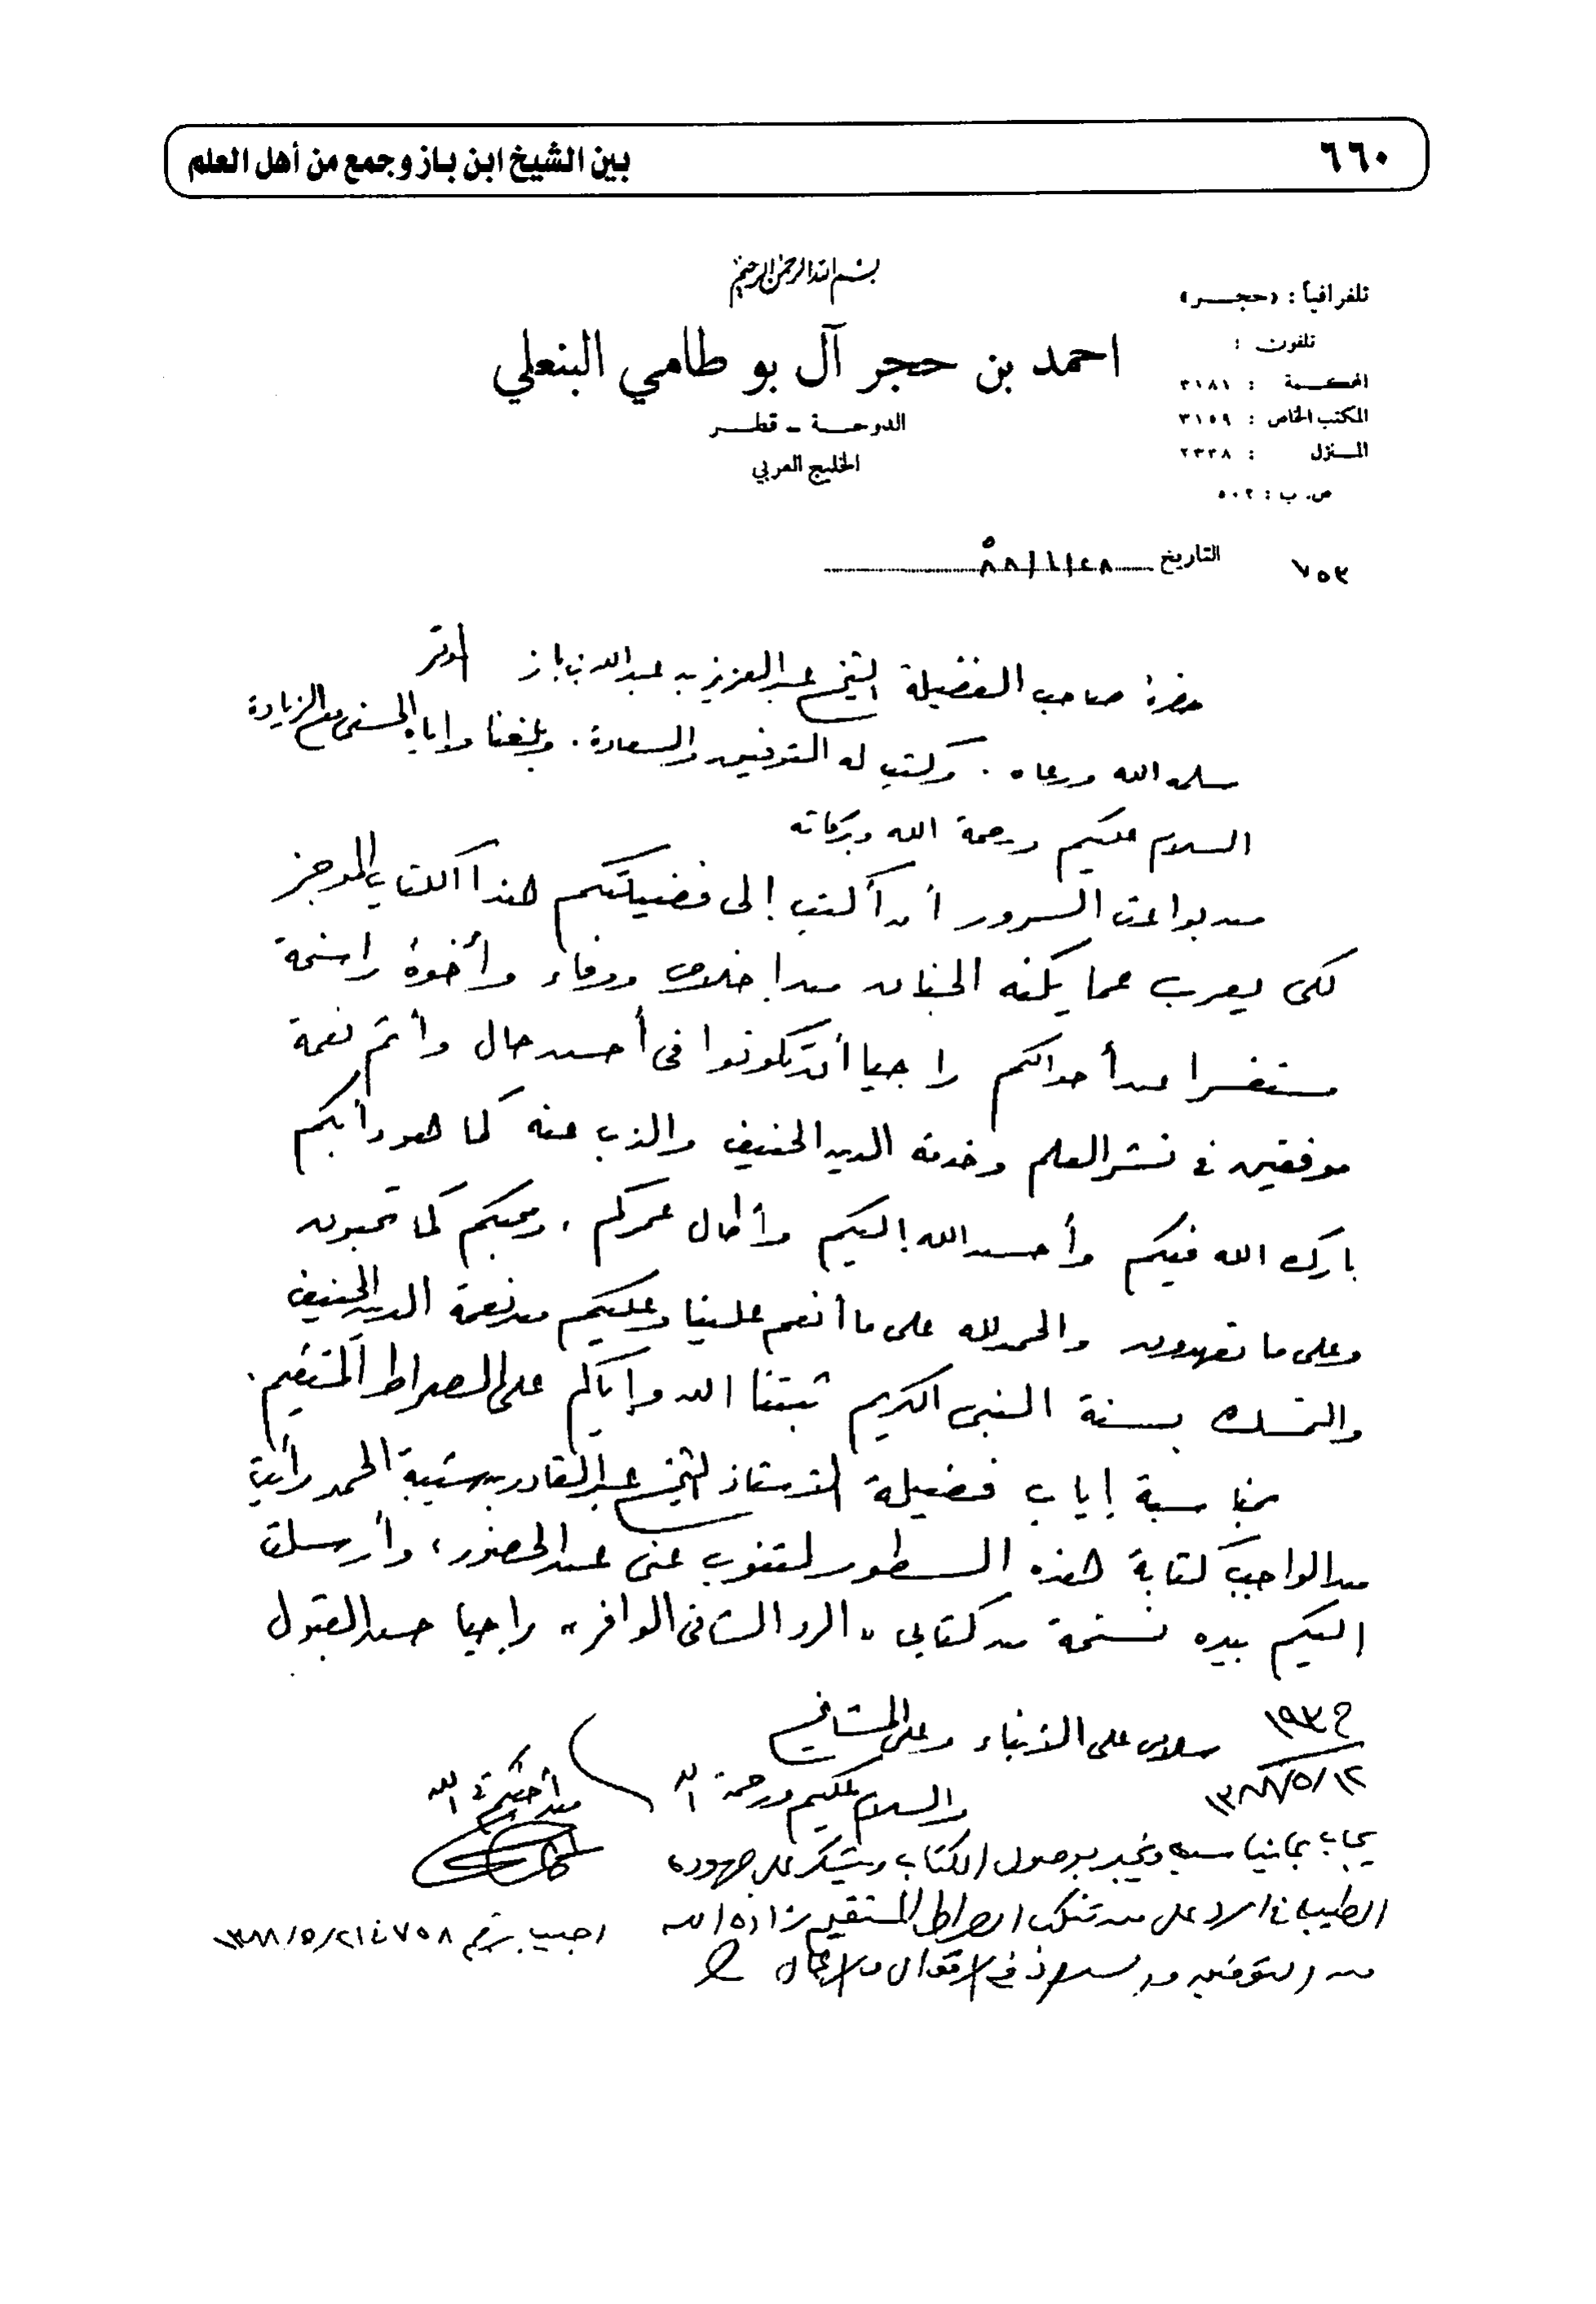 ٦٦٠
بين الشيخ ابن باز وجمع من أهل العلم
بسم الله الرحمن الرحيم
احمد بن حجر آل بو طامي البنعلي
الدوحة - قطر
الخليج العربي
تلغرافياً : «حجر»
تلفون :
المحكمة : ٣١٨١
المكتب الخاص : ٣١٥٩
المنزل : ٢٣٣٨
ص. ب : ٥٠٢
٧٥٣
التاريخ ٢٨/١/٨٨ ه
حضرة صاحب الفضيلة الشيخ عبد العزيز بن عبد الله بن باز الموقر
سلمه الله ورعاه . وكتب له التوفيق والسعادة . وبلغنا وإياه الحسنى مع الزيادة
السلام عليكم ورحمة الله وبركاته
من بواعث السرور أن أكتب إلى فضيلتكم هذا الكتاب الموجز
لكى يعرب عما يكنه الجنان من إخلاص ووفاء وأخوة راسخة
مستفسرا عن أحوالكم راجيا أن تكونوا فى أحسن حال وأتم نعمة
موفقين فى نشر العلم وخدمة الدين الحنيف والذب عنه كما هو دأبكم
بارك الله فيكم وأحسن الله إليكم وأطال عمركم ، ومحبكم كما تحبون
وعلى ما تعهدون والحمد لله على ما أنعم علينا وعليكم من نعمة الدين الحنيف
والتمسك بسنة النبى الكريم ثبتنا الله وإياكم على الصراط المستقيم .
بمناسبة إياب فضيلة الأستاذ الشيخ عبد القادر بن شيبة الحمد رأيت
من الواجب كتابة هذه السطور لتنوب عنى عند الحضور ، وأرسلت
اليكم بيده نسخة من كتابى " الرد الشافى الوافر " راجيا حسن القبول
سلامى على الأبناء وعلى المشايخ
١٩٣٢
١٢/٥/١٣٨٨
والسلام عليكم ورحمة الله
من أخيكم فى الله
يجاب بما يناسب ويخبر بوصول الكتاب ويشكر على جهوده
الطيبة في الرد على من تنكب الصراط المستقيم زاده الله
من التوفيق و في الاقوال والاعمال
اجيب برقم ٧٥٨ في ٢١/٥/١٣٨٨